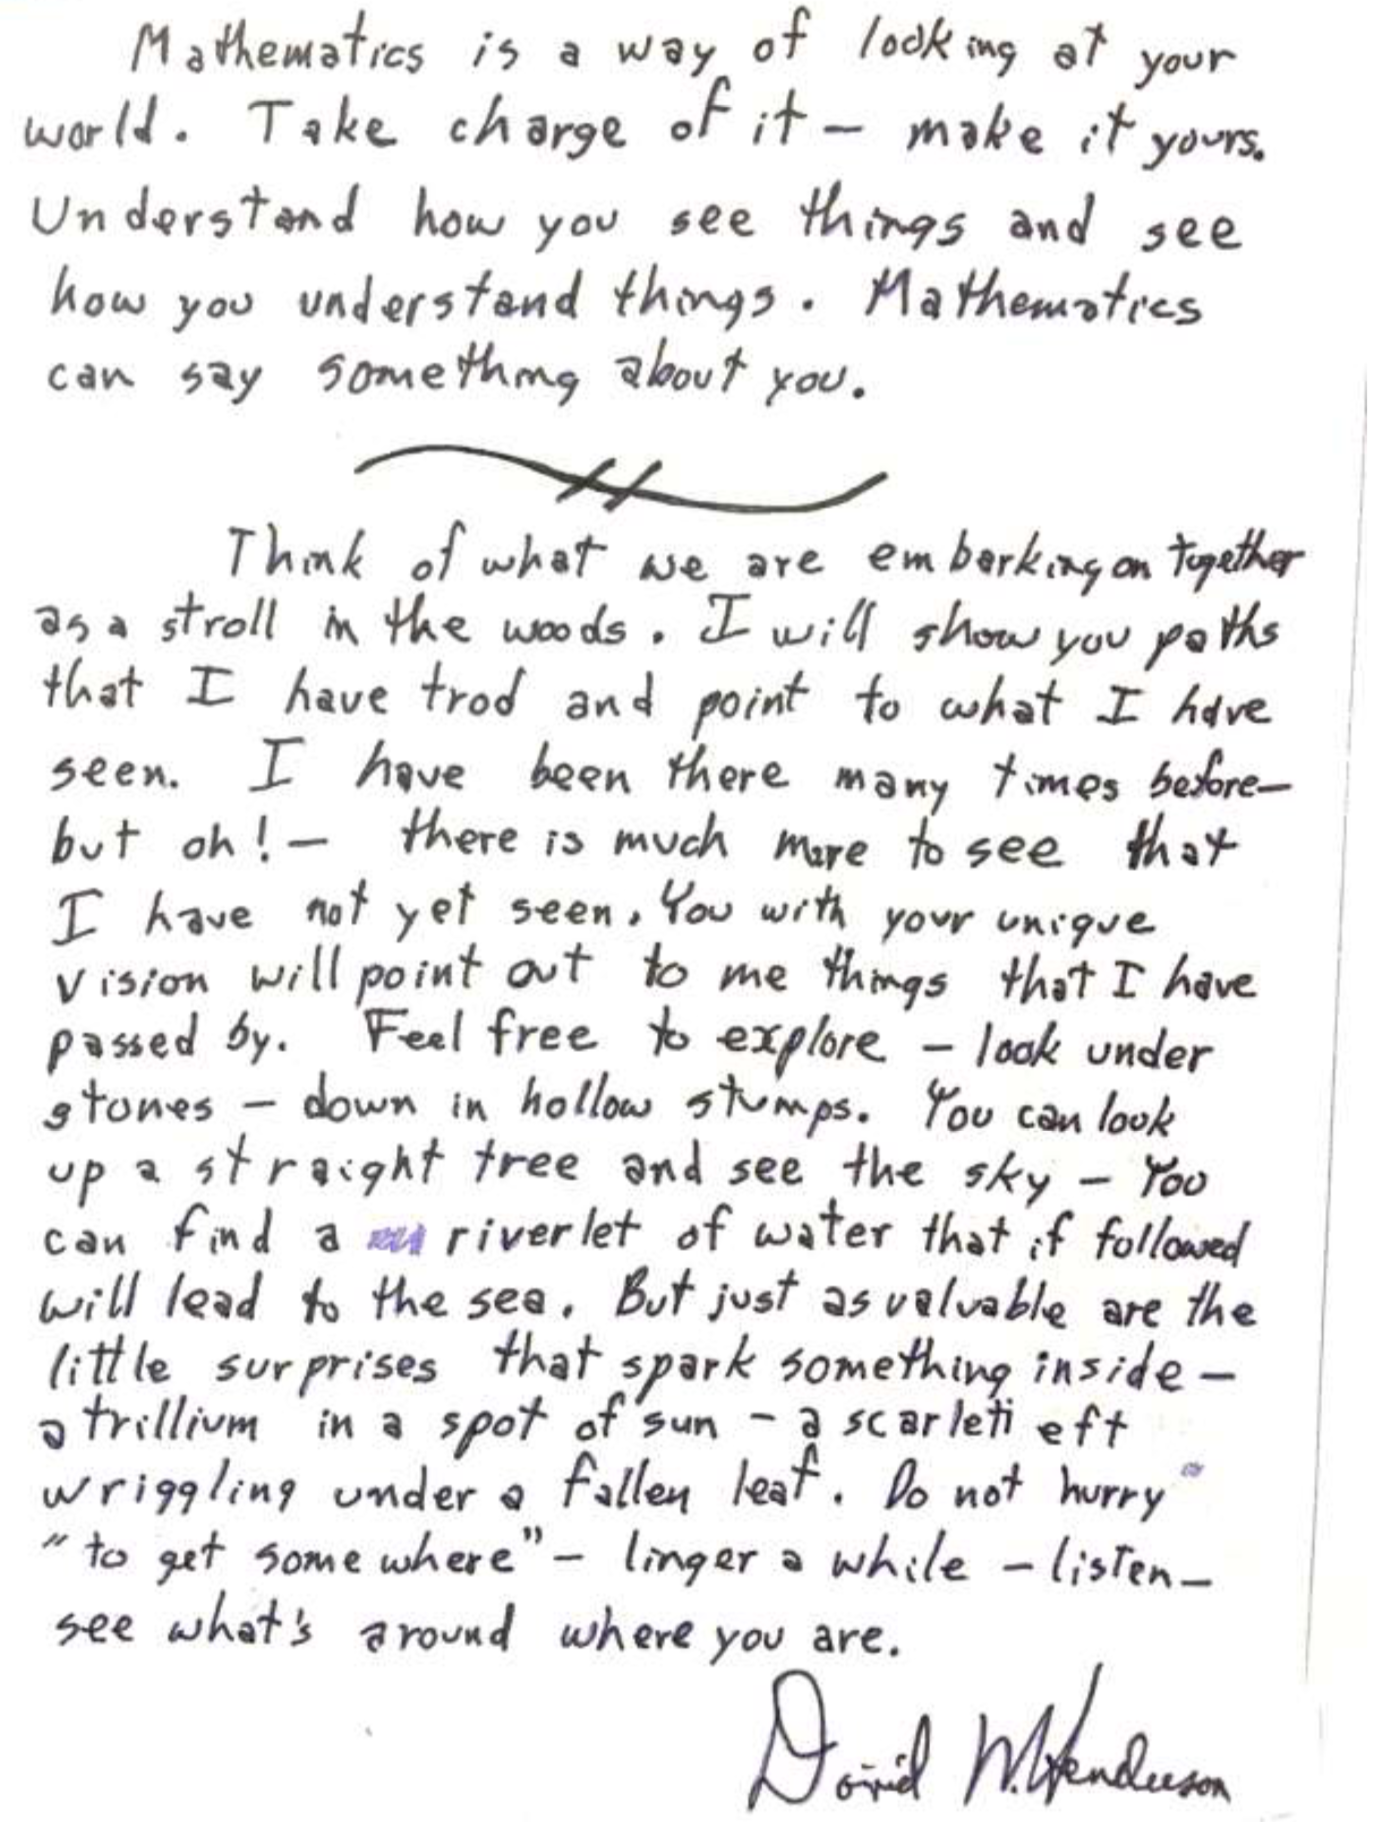 Mathematics is a way of looking at your
world. Take charge of it — make it yours.
Understand how you see things and see
how you understand things. Mathematics
can say something about you.
Think of what we are embarking on together
as a stroll in the woods. I will show you paths
that I have trod and point to what I have
seen. I have been there many times before—
but oh! — there is much more to see that
I have not yet seen. You with your unique
vision will point out to me things that I have
passed by. Feel free to explore — look under
stones — down in hollow stumps. You can look
up a straight tree and see the sky — You
can find a riverlet of water that if followed
will lead to the sea. But just as valuable are the
little surprises that spark something inside —
a trillium in a spot of sun — a scarlet eft
wriggling under a fallen leaf. Do not hurry
"to get somewhere" — linger a while — listen —
see what's around where you are.
David W. Henderson